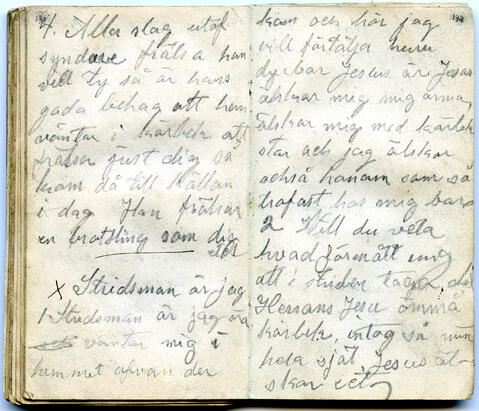 4. Alla slag utaf
syndare frälsa han
vill ty så är hans
goda behag att han
väntar i kärlek att
frälsa just dig så
kom då till källan
i dag Han frälsar
en brottsling som dig
x Stridsman är jag
1 Stridsman är jag
väntar mig i
himmet ofvan der
kom och hör jag
vill förtälja huru
dyrbar Jesus är Jesus
älskar mig mig arma,
älskar mig med kärlek
stor och jag älskar
också honom som så
trofast hos mig
2 Vill du veta
hvad förmått mig
att i striden taga del
Herrans Jesu ömma
kärlek, intog så min
hela själ Jesus äl-
skar etc